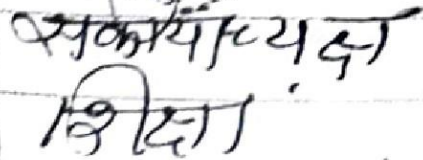 संकायाध्यक्ष
शिक्षा